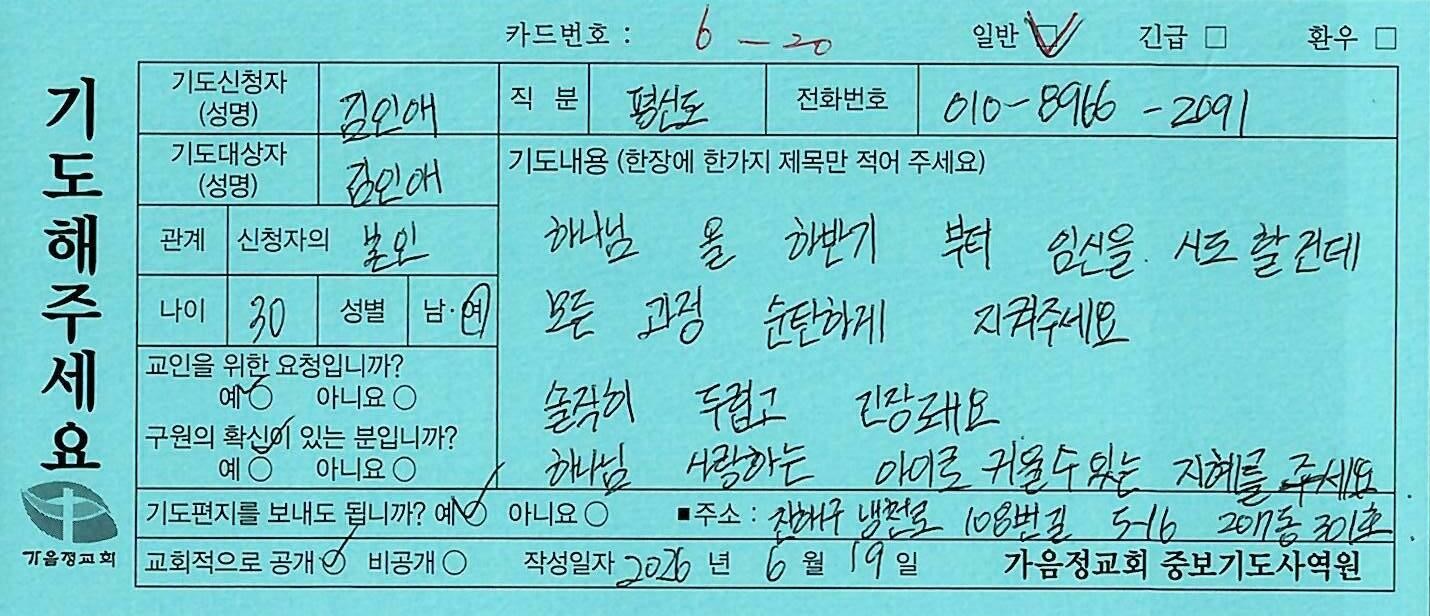 카드번호 : 6 - 20 일반 ☑ 긴급 □ 환우 □
기도해주세요
기도신청자 (성명) 김인애 직 분 평신도 전화번호 010-8966-2091
기도대상자 (성명) 김인애
관계 신청자의 본인
나이 30 성별 남·여
교인을 위한 요청입니까?
예 ○ 아니요 ○
구원의 확신이 있는 분입니까?
예 ○ 아니요 ○
기도내용 (한장에 한가지 제목만 적어 주세요)
하나님 올 하반기 부터 임신을 시도 할건데
모든 과정 순탄하게 지켜주세요
솔직히 두렵고 긴장돼요
하나님 사랑하는 아이로 키울수 있는 지혜를 주세요
기도편지를 보내도 됩니까? 예 ○ 아니요 ○ ■주소 : 진해구 냉천로 108번길 5-16 207동 301호
교회적으로 공개 ○ 비공개 ○ 작성일자 2026 년 6 월 19 일 가음정교회 중보기도사역원
가음정교회